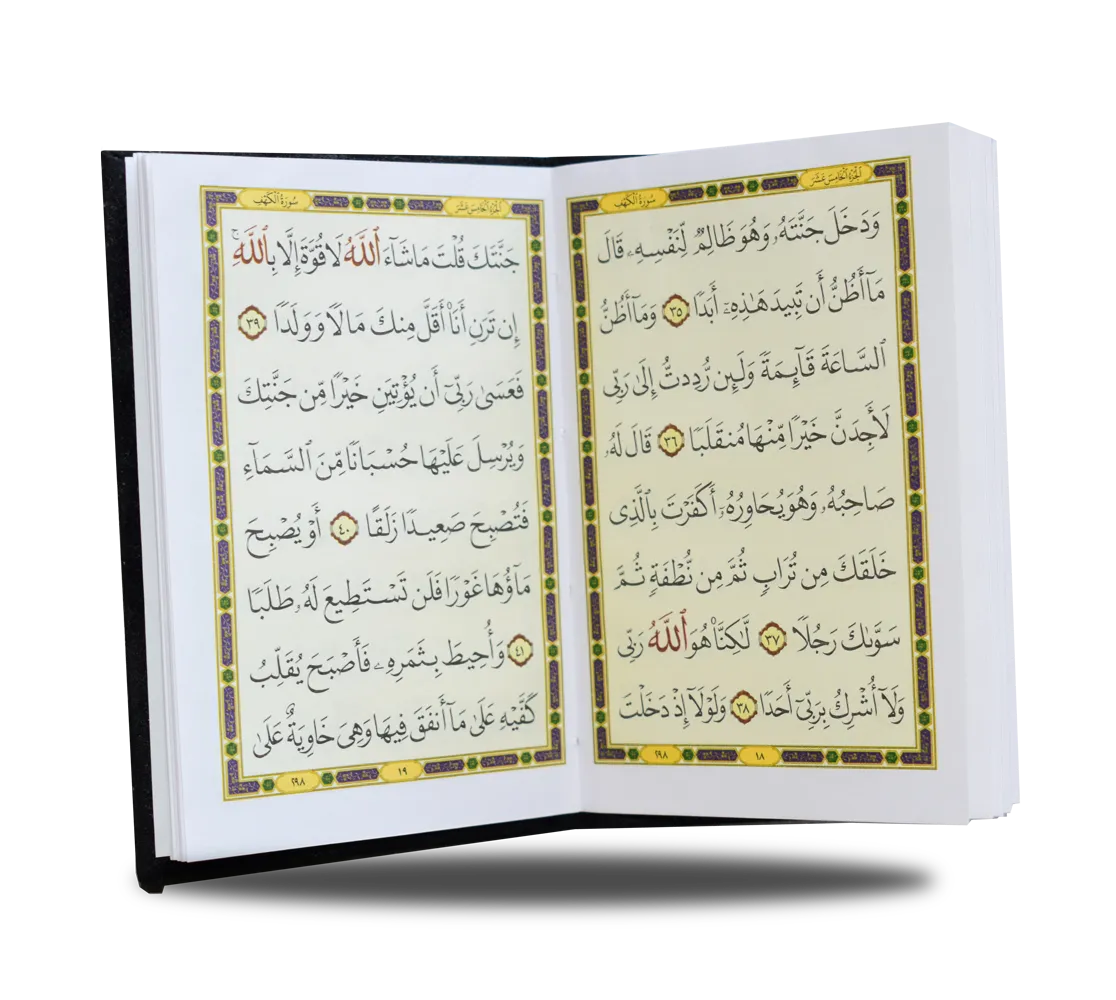 سُورَةُ الكَهْفِ
الجُزْءُ الخَامِسَ عَشَرَ
وَدَخَلَ جَنَّتَهُۥ وَهُوَ ظَالِمٌ لِّنَفْسِهِۦ قَالَ
مَآ أَظُنُّ أَن تَبِيدَ هَـٰذِهِۦٓ أَبَدًا ٣٥ وَمَآ أَظُنُّ
ٱلسَّاعَةَ قَآئِمَةً وَلَئِن رُّدِدتُّ إِلَىٰ رَبِّى
لَأَجِدَنَّ خَيْرًا مِّنْهَا مُنقَلَبًا ٣٦ قَالَ لَهُۥ
صَاحِبُهُۥ وَهُوَ يُحَاوِرُهُۥٓ أَكَفَرْتَ بِٱلَّذِى
خَلَقَكَ مِن تُرَابٍ ثُمَّ مِن نُّطْفَةٍ ثُمَّ
سَوَّىٰكَ رَجُلًا ٣٧ لَّـٰكِنَّا۠ هُوَ ٱللَّهُ رَبِّى
وَلَآ أُشْرِكُ بِرَبِّىٓ أَحَدًا ٣٨ وَلَوْلَآ إِذْ دَخَلْتَ
١٨
٢٩٨
سُورَةُ الكَهْفِ
الجُزْءُ الخَامِسَ عَشَرَ
جَنَّتَكَ قُلْتَ مَا شَآءَ ٱللَّهُ لَا قُوَّةَ إِلَّا بِٱللَّهِ ۚ
إِن تَرَنِ أَنَا۠ أَقَلَّ مِنكَ مَالًا وَوَلَدًا ٣٩
فَعَسَىٰ رَبِّىٓ أَن يُؤْتِيَنِ خَيْرًا مِّن جَنَّتِكَ
وَيُرْسِلَ عَلَيْهَا حُسْبَانًا مِّنَ ٱلسَّمَآءِ
فَتُصْبِحَ صَعِيدًا زَلَقًا ٤٠ أَوْ يُصْبِحَ
مَآؤُهَا غَوْرًا فَلَن تَسْتَطِيعَ لَهُۥ طَلَبًا
٤١ وَأُحِيطَ بِثَمَرِهِۦ فَأَصْبَحَ يُقَلِّبُ
كَفَّيْهِ عَلَىٰ مَآ أَنفَقَ فِيهَا وَهِىَ خَاوِيَةٌ عَلَىٰ
١٩
٢٩٨